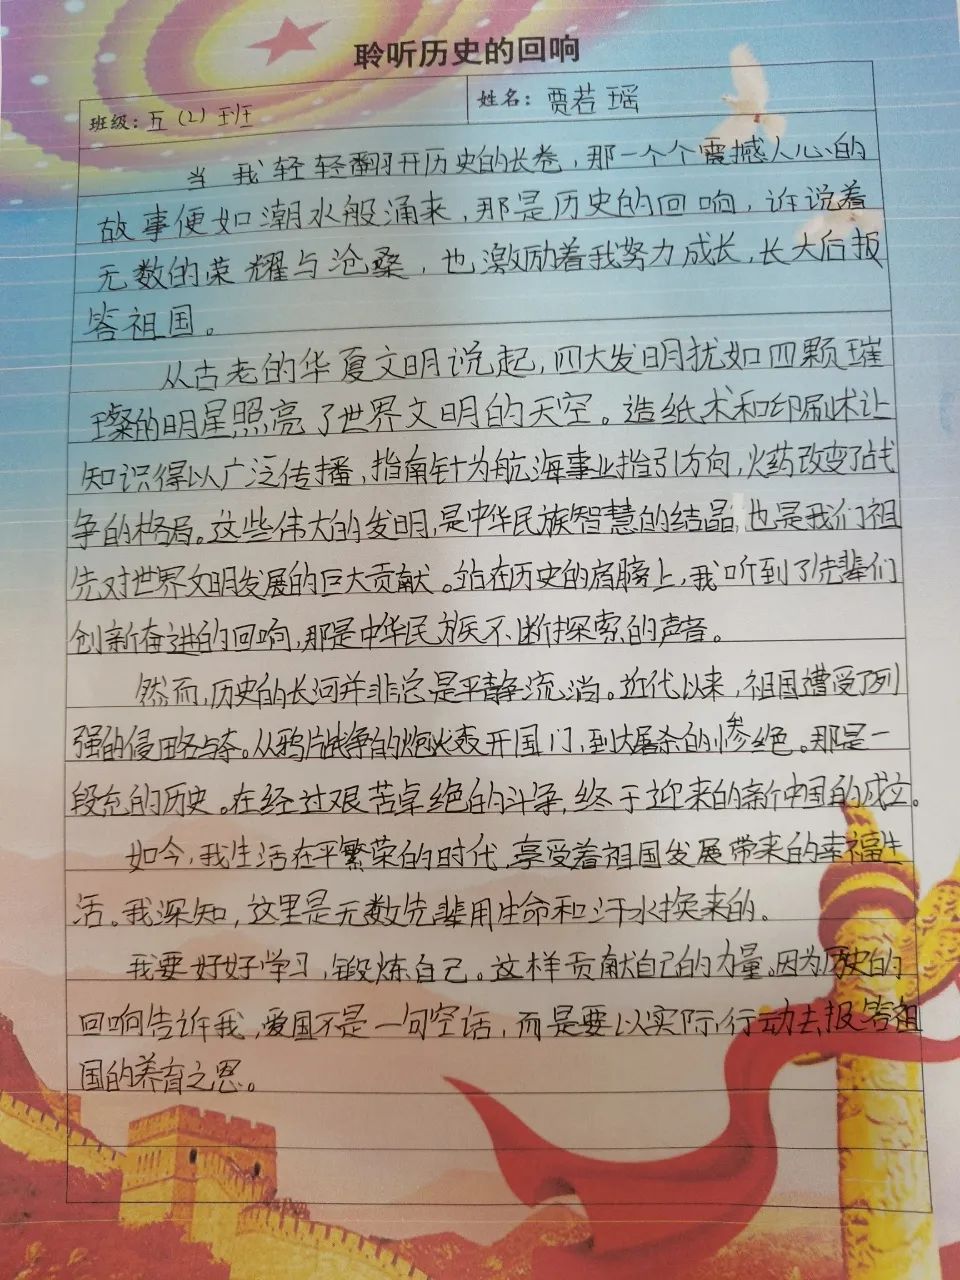 聆听历史的回响
班级：五（2）班 姓名：贾若瑶
当我轻轻翻开历史的长卷，那一个个震撼人心的
故事便如潮水般涌来，那是历史的回响，诉说着
无数的荣耀与沧桑，也激励着我努力成长，长大后报
答祖国。
从古老的华夏文明说起，四大发明犹如四颗璀
璨的明星照亮了世界文明的天空。造纸术和印刷术让
知识得以广泛传播，指南针为航海事业指引方向，火药改变了战
争的格局。这些伟大的发明，是中华民族智慧的结晶，也是我们祖
先对世界文明发展的巨大贡献。站在历史的肩膀上，我听到了先辈们
创新奋进的回响，那是中华民族不断探索的声音。
然而，历史的长河并非总是平静流淌。近代以来，祖国遭受了列
强的侵略与夺。从鸦片战争的炮火轰开国门，到大屠杀的惨绝。那是一
段充的历史。在经过艰苦卓绝的斗争，终于迎来的新中国的成立。
如今，我生活在平繁荣的时代，享受着祖国发展带来的幸福生
活。我深知，这里是无数先辈用生命和汗水换来的。
我要好好学习，锻炼自己。这样贡献自己的力量。因为历史的
回响告诉我，爱国不是一句空话，而是要以实际行动去报答祖
国的养育之恩。